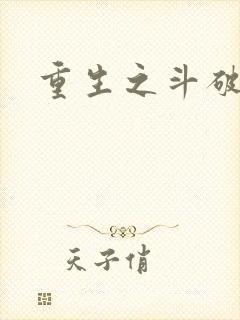 重生之斗破
天子俏